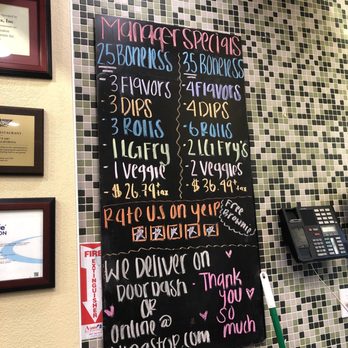 Manager Specials
25 Boneless
3 Flavors
3 Dips
3 Rolls
1 LG Fry
1 Veggie
- $26.79 +tax
35 Boneless
4 Flavors
4 Dips
6 Rolls
2 LG Fry's
2 Veggies
- $36.49 +tax
Rate us on Yelp
Free Brownie
We Deliver on
DoorDash
OR
online @
Thank
you
so
much
FIRE
EXTINGUISHER